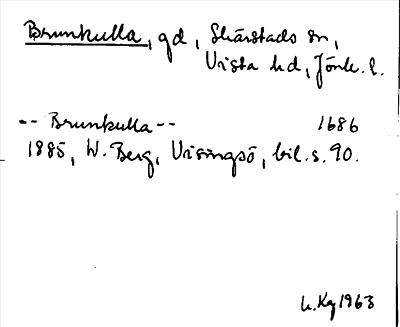 Brunkulla, gd, Skärstads sn,
Vista hd, Jönk. l.
-- Brunkulla -- 1686
1885, W. Berg, Visingsö, bil. s. 90.
1963